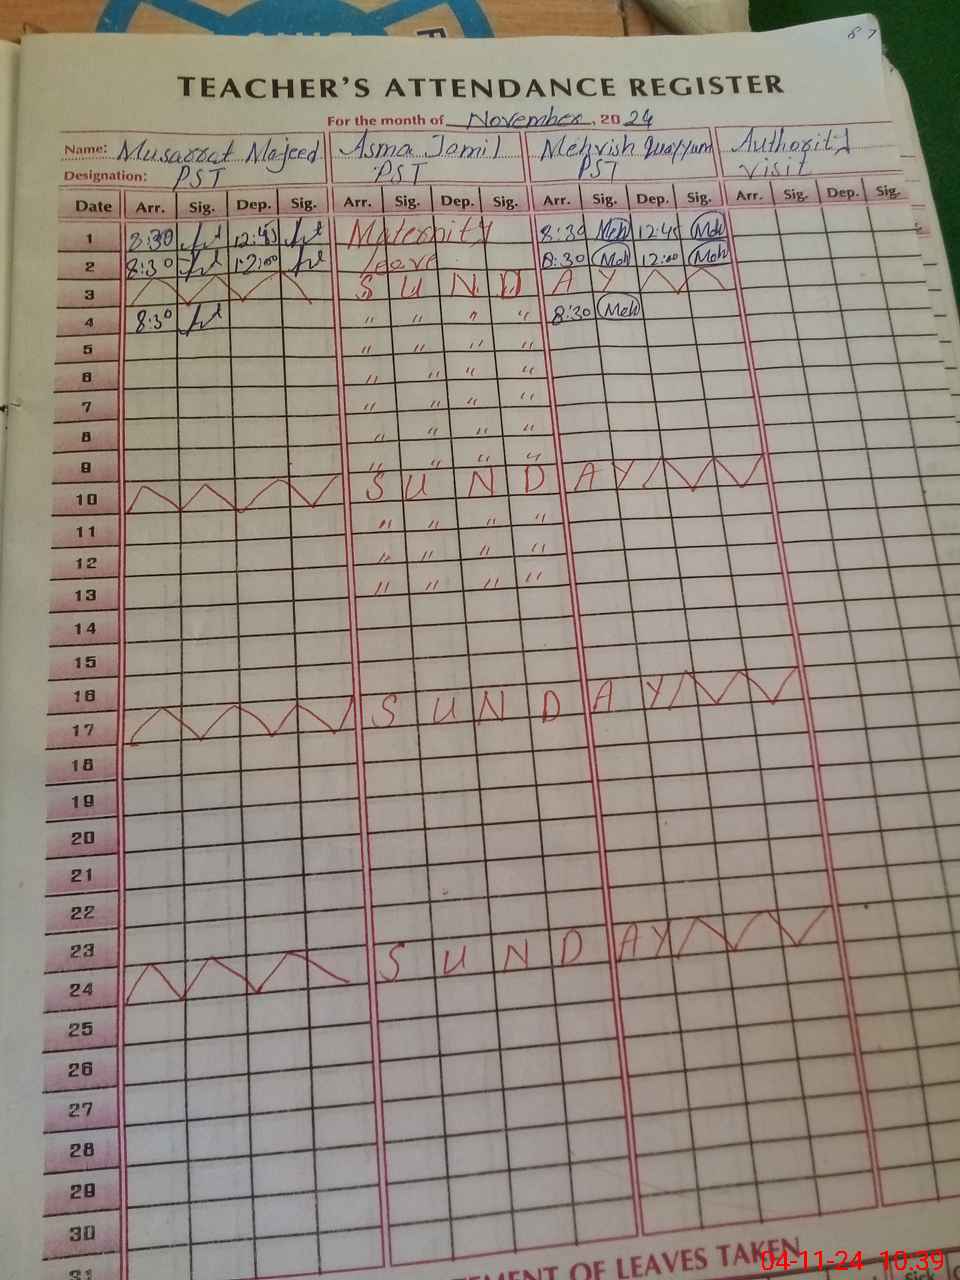 87
TEACHER'S ATTENDANCE REGISTER
For the month of November, 2024
Name: Musarrat Majeed Asma Jamil Mehvish Qayyum Authority
Designation: PST PST PST Visit
Date Arr. Sig. Dep. Sig. Arr. Sig. Dep. Sig. Arr. Sig. Dep. Sig. Arr. Sig. Dep. Sig.
1 8:30 12:45 Maternity 8:30 Meh 12:45 Meh
2 8:30 12:00 leave 8:30 Meh 12:00 Meh
3 S U N D A Y
4 8:30 " " " " 8:30 Meh
5 " " " "
6 " " " "
7 " " " "
8 " " " "
9 " " " "
10 S U N D A Y
11 " " " "
12 " " " "
13 " " " "
14
15
16
17 S U N D A Y
18
19
20
21
22
23
24 S U N D A Y
25
26
27
28
29
30
31
OF LEAVES TAKEN
04-11-24 10:39